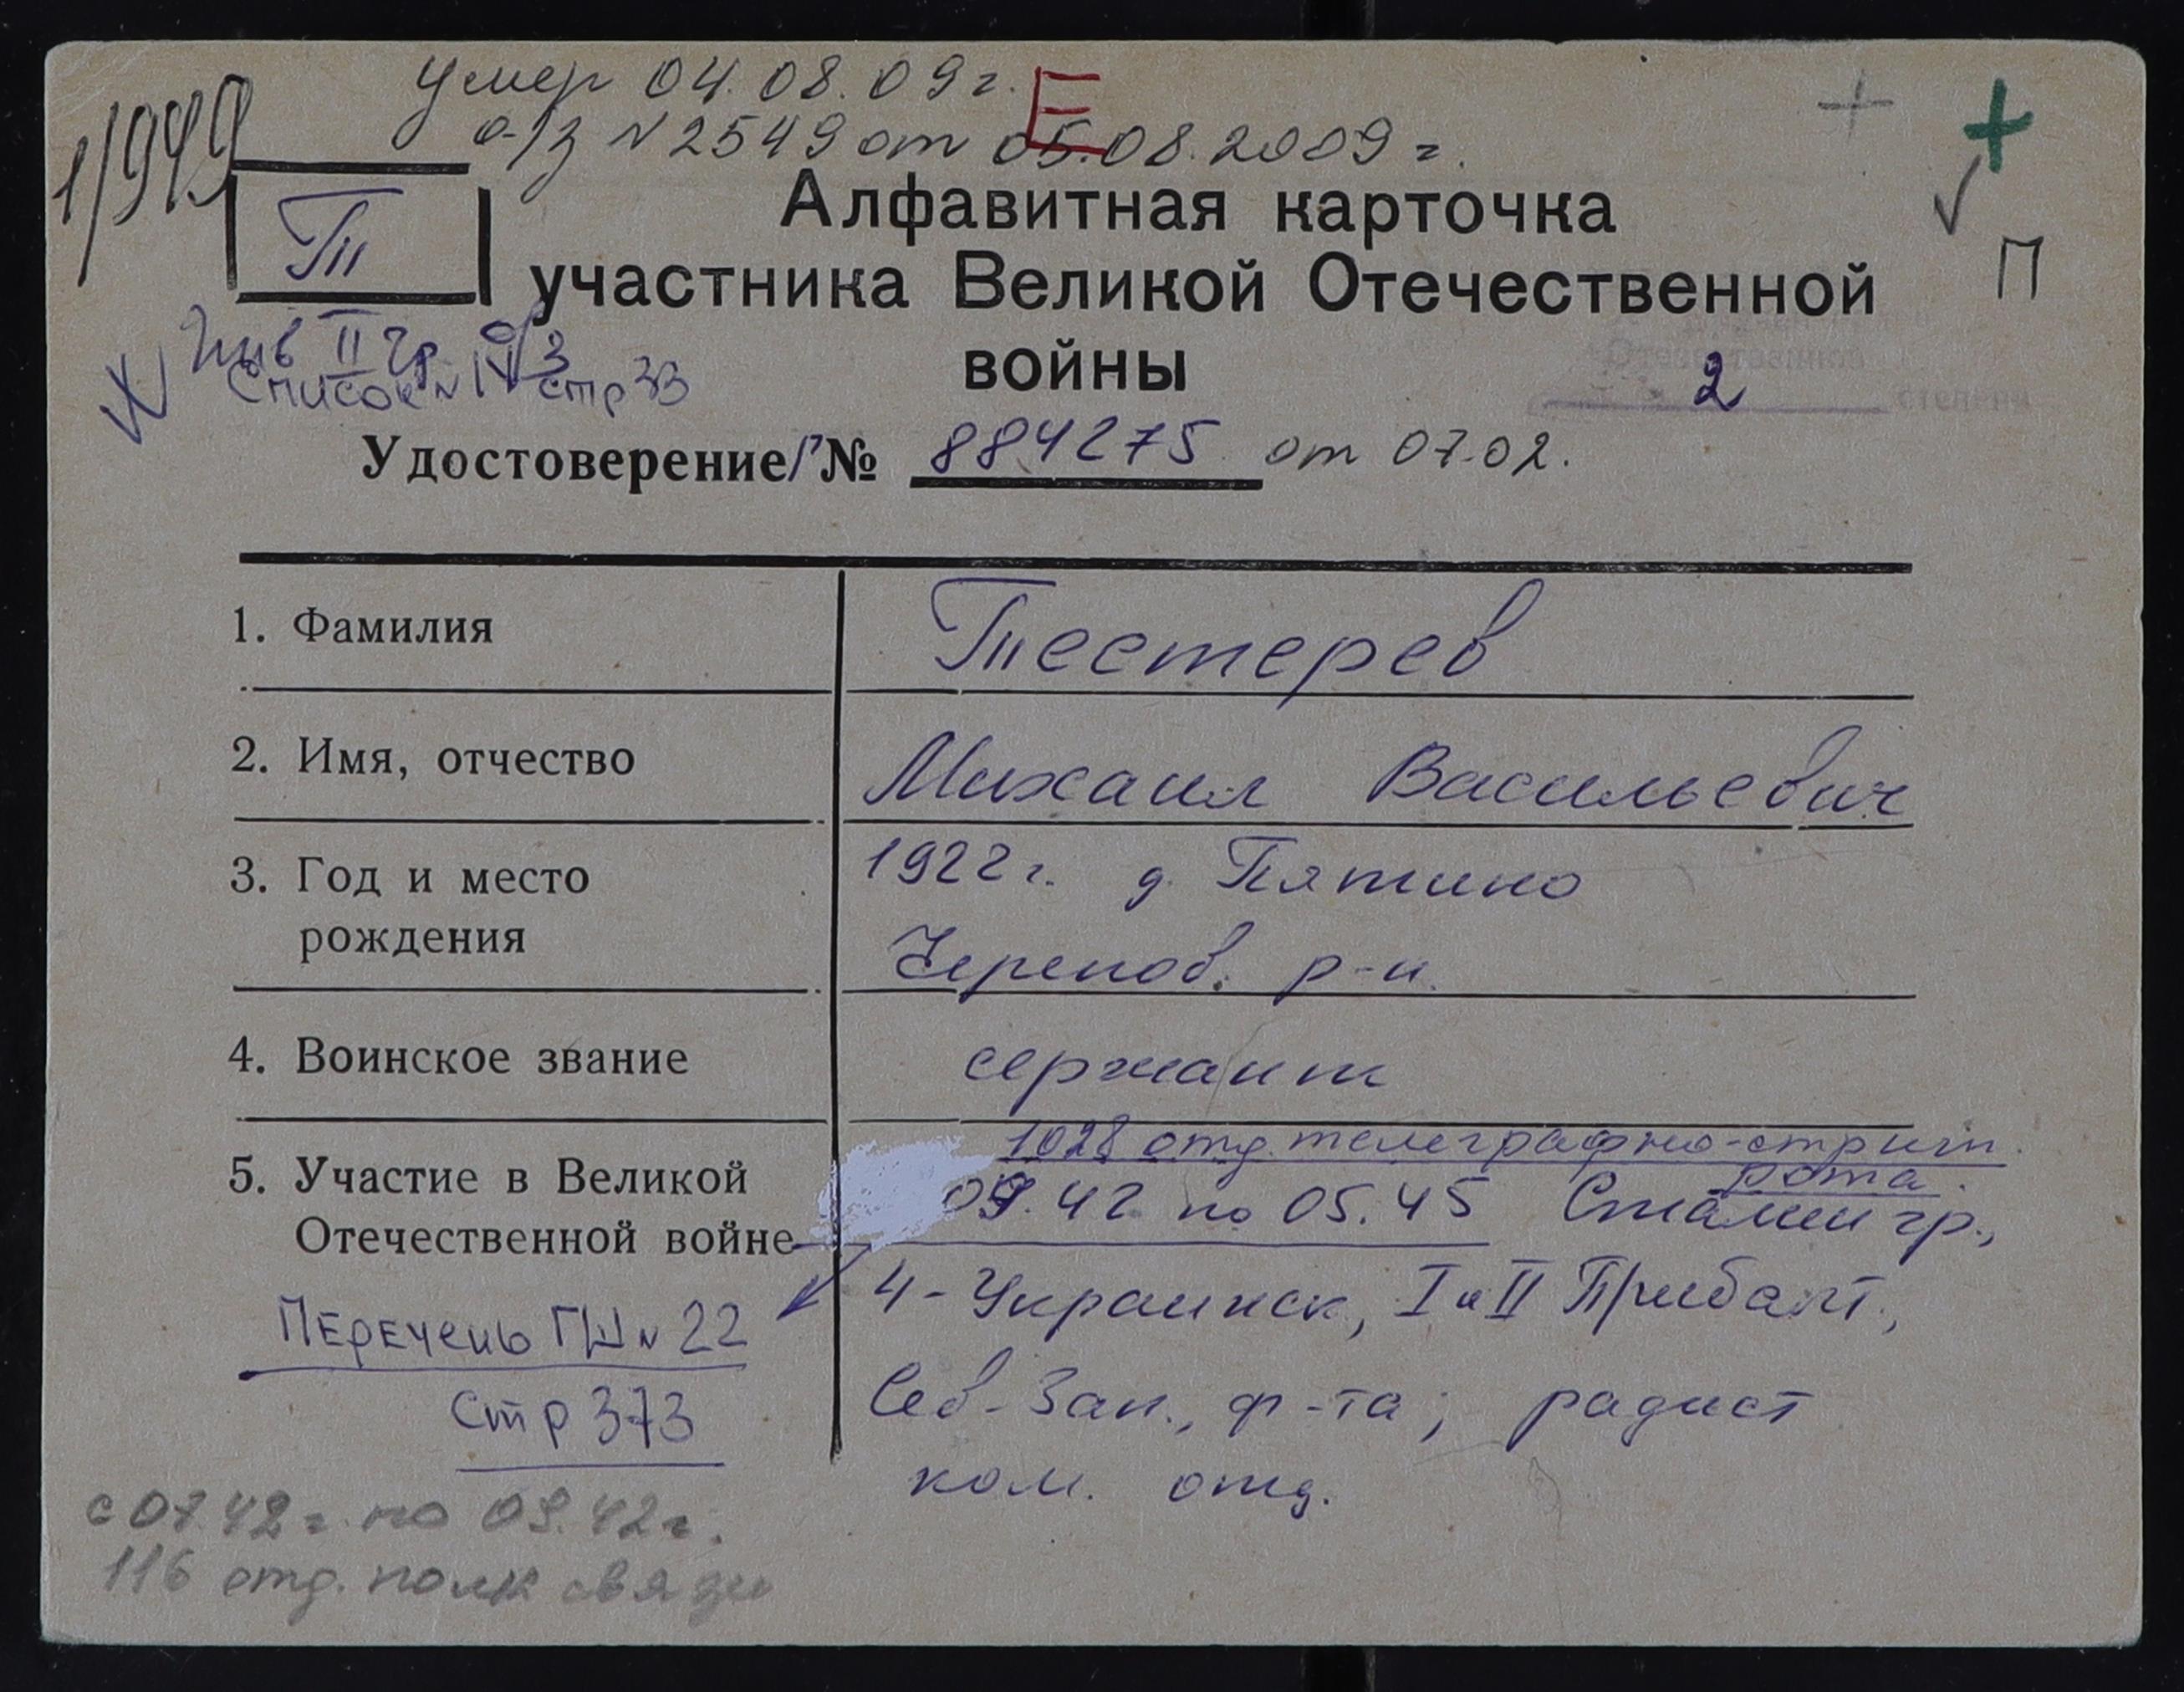 умер 04.08.09г. Е
а-/з N 2549 от 05.08.2009 г.
1/949
Т
Алфавитная карточка
участника Великой Отечественной
войны
П
Инв II гр
Список N стр 33
2
степени
Удостоверение/ № 884275 от 07.02.
1. Фамилия Тестерев
2. Имя, отчество Михаил Васильевич
3. Год и место 1922 г. д. Пятино
рождения Черепов. р-н.
4. Воинское звание сержант
1028 отд. телеграфно-строит.
рота.
5. Участие в Великой 09.42 по 05.45 Сталингр.,
Отечественной войне 4-Украинск, I и II Прибалт.,
Перечень ГШ N 22
Сев-Зап., ф-та; радист
стр 373
ком. отд.
с 07.42г. по 09.42г.
116 отд. полк связи